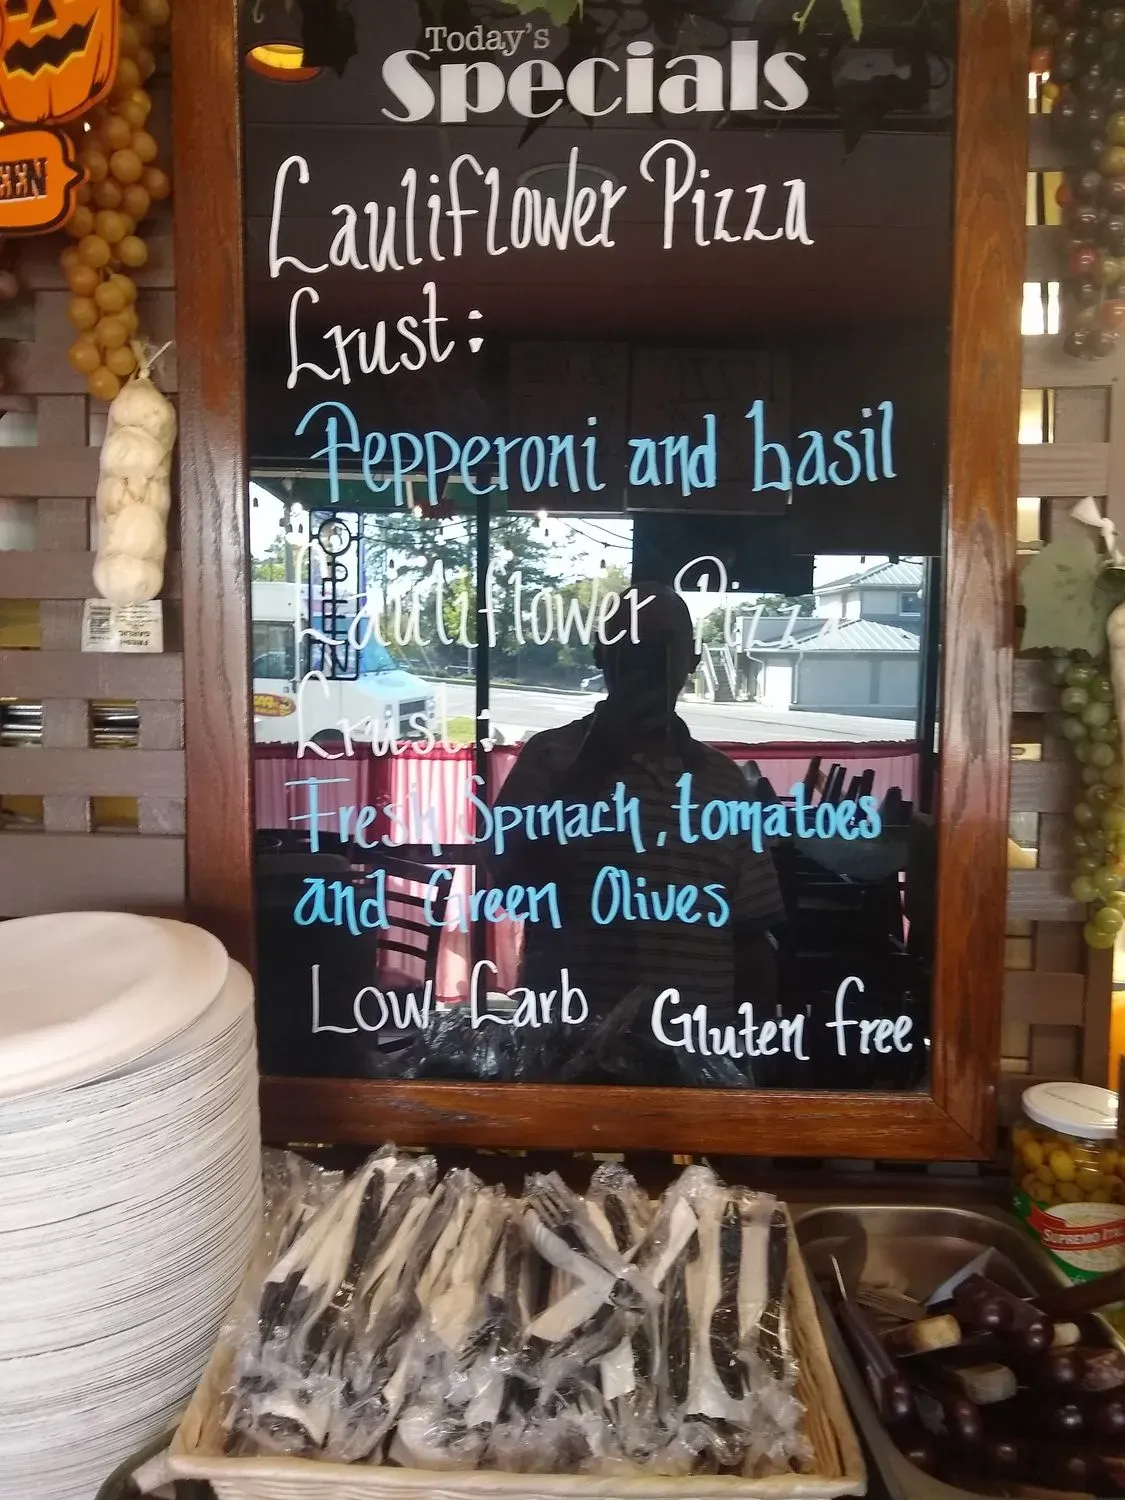 Today's
Specials
Cauliflower Pizza
Crust:
Pepperoni and basil
Cauliflower Pizza
Crust:
Fresh Spinach, tomatoes
and Green Olives
Low Carb Gluten free
FRESH
GARLIC
SUPREMO ITA